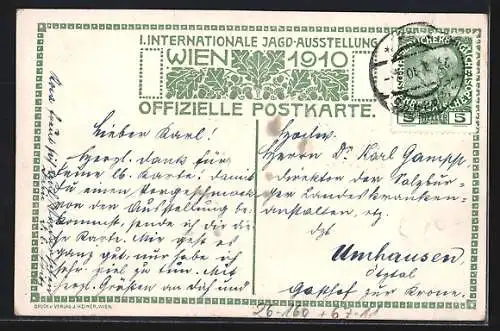 I. INTERNATIONALE JAGD-AUSSTELLUNG
WIEN 1910
OFFIZIELLE POSTKARTE.
5 5
Lieber Karl!
Herzl. Dank für
Deine lb. Karte! Damit
Du einen Vorgeschmack
von der Ausstellung be-
kommst, sende ich Dir die-
se Karte. Mir geht es
ganz gut, nur habe ich
sehr viel zu tun. Mit
herzl. Grüßen an Dah und
Hochw.
Herrn Dr. Karl Gampp
Direktor der Salzbur-
ger Landeskranken-
anstalten, etz.
dzt
Umhausen
Ötztal
Gasthof zur Krone.
DRUCK u. VERLAG J. WEINER, WIEN.
26-160 + 67-11